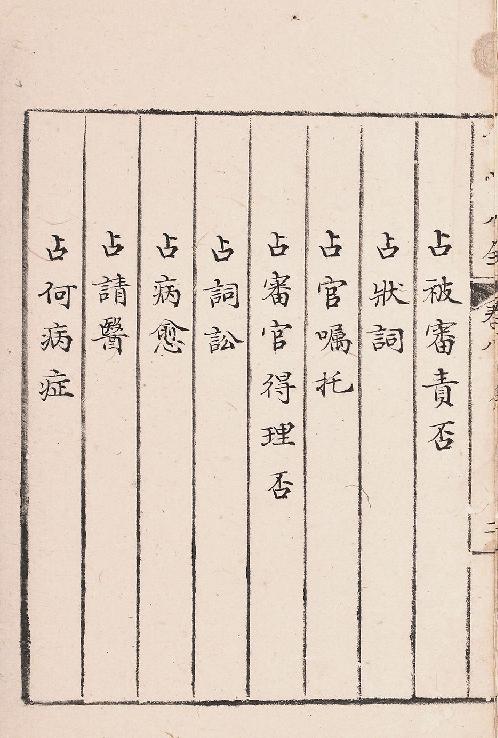 占被審責否
占狀詞
占官囑托
占審官得理否
占詞訟
占病愈
占請醫
占何病症